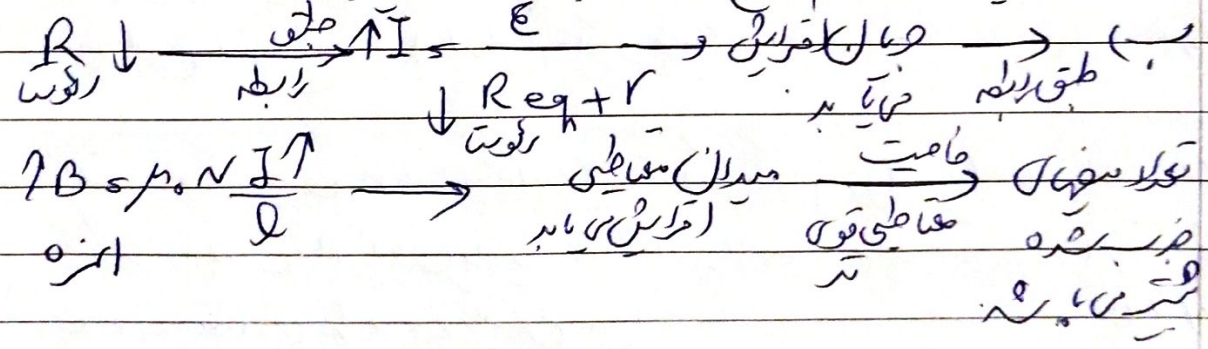 ب) R↓ رئوستا → طبق رابطه ↑I = ε / ↓Req + r رئوستا و جریان افزایش می‌یابد → طبق رابطه
↑B = μ₀ N I↑ / l → میدان مغناطیسی افزایش می‌یابد → خاصیت مغناطیسی قوی تر → تعداد جذب شده بیشتر می‌باشد.